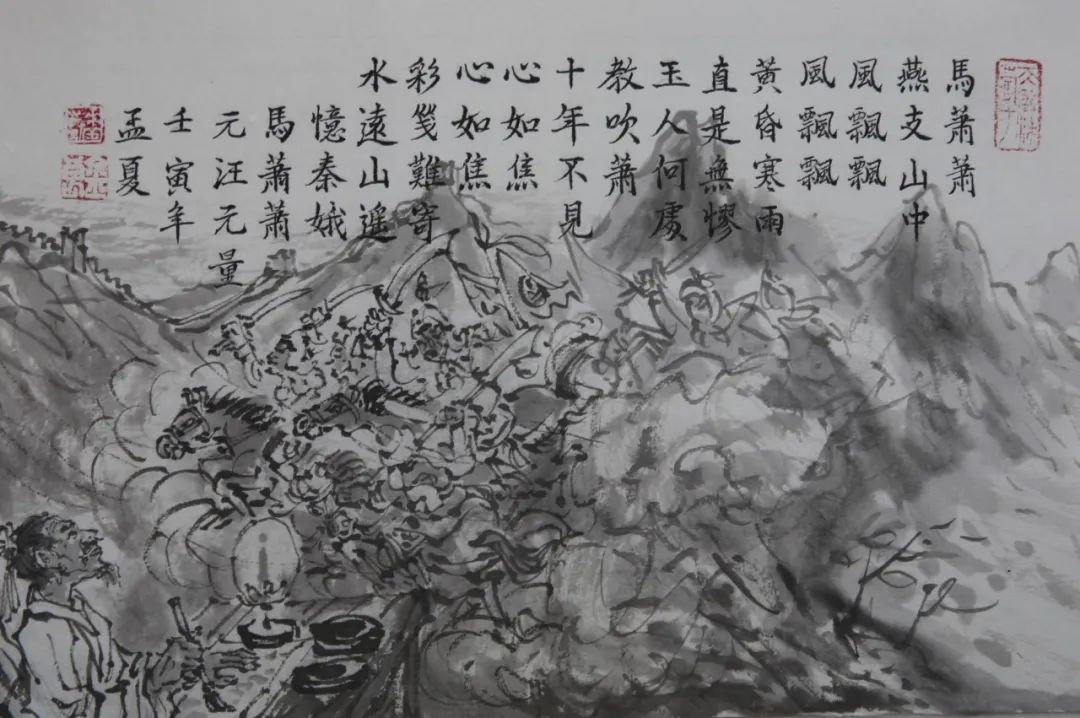 馬萧萧
燕支山中
風飄飄
風飄飄
黄昏寒雨
直是無憀
玉人何處
教吹萧
十年不見
心如焦
心如焦
彩箋難寄
水遠山遥
憶秦娥
馬萧萧
元汪元量
壬寅年
孟夏